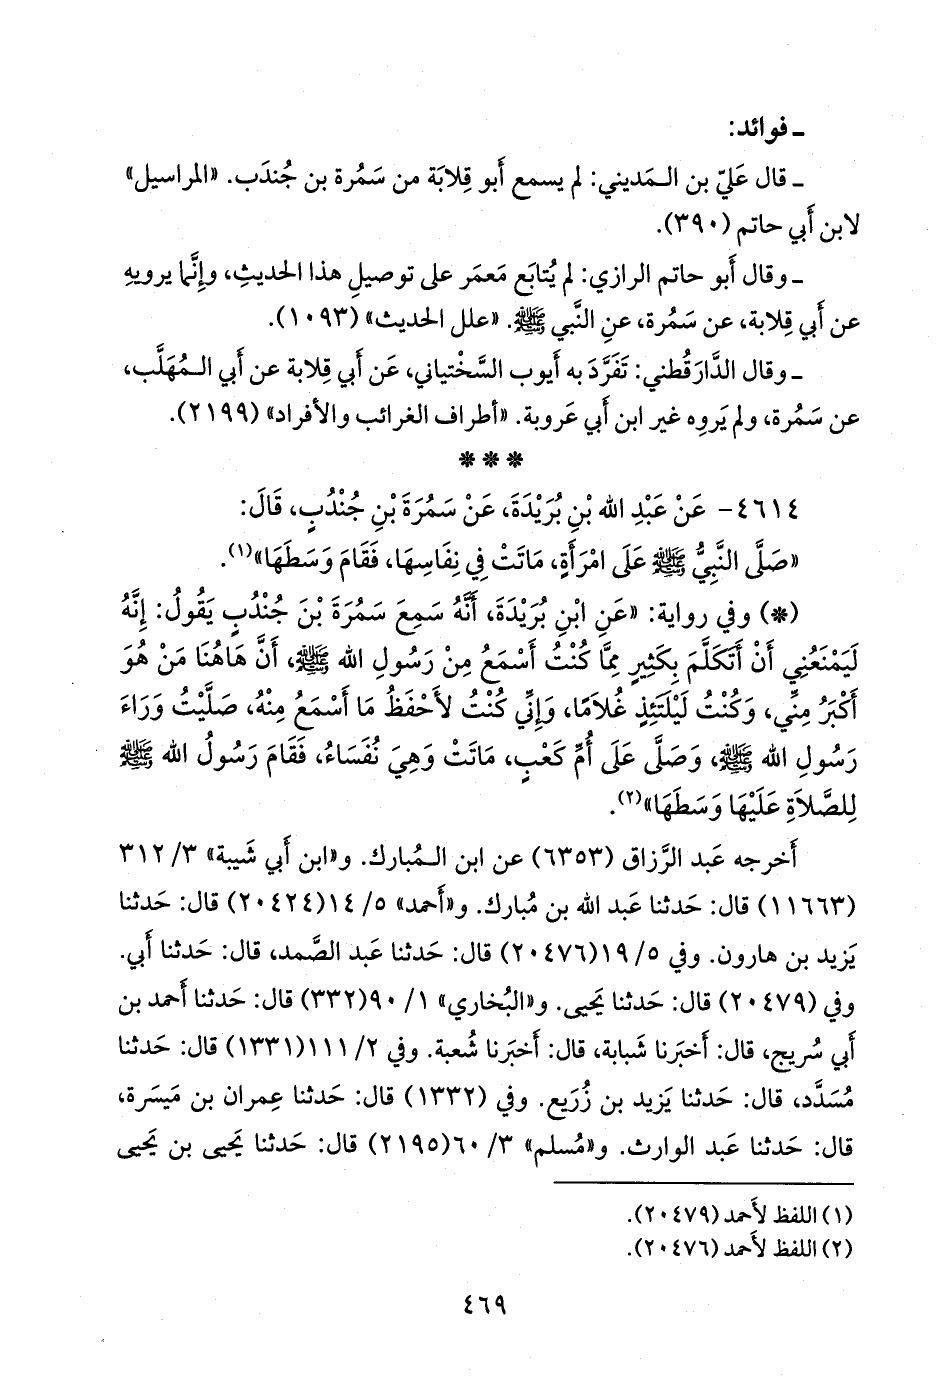 ـ فوائد:
ـ قال عَليّ بن الـمَديني: لم يسمع أَبو قِلابَة من سَمُرة بن جُندَب. «المراسيل»
لابن أَبي حاتم (٣٩٠).
ـ وقال أَبو حاتم الرازي: لم يُتابَع مَعمَر على توصيلِ هذا الحديثِ، وإِنَّما يرويهِ
عن أَبي قِلابة، عن سَمُرة، عنِ النَّبي ﷺ. «علل الحديث» (١٠٩٣).
ـ وقال الدَّارَقُطني: تَفَرَّدَ به أَيوب السَّختياني، عَن أَبي قِلابة عن أَبي الـمُهَلَّب،
عن سَمُرة، ولم يَروِه غير ابن أَبي عَروبة. «أطراف الغرائب والأفراد» (٢١٩٩).
* * *
٤٦١٤- عَنْ عَبْدِ الله بْنِ بُرَيْدَةَ، عَنْ سَمُرَةَ بْنِ جُنْدُبٍ، قَالَ:
«صَلَّى النَّبِيُّ ﷺ عَلَى امْرَأَةٍ، مَاتَتْ فِي نِفَاسِهَا، فَقَامَ وَسَطَهَا»(١).
(*) وفي رواية: «عَنِ ابْنِ بُرَيْدَةَ، أَنَّهُ سَمِعَ سَمُرَةَ بْنَ جُنْدُبٍ يَقُولُ: إِنَّهُ
لَيَمْنَعُنِي أَنْ أَتَكَلَّمَ بِكَثِيرٍ مِمَّا كُنْتُ أَسْمَعُ مِنْ رَسُولِ الله ﷺ، أَنَّ هَاهُنَا مَنْ هُوَ
أَكْبَرُ مِنِّي، وَكُنْتُ لَيْلَتَئِذٍ غُلَامًا، وَإِنِّي كُنْتُ لأَحْفَظُ مَا أَسْمَعُ مِنْهُ، صَلَّيْتُ وَرَاءَ
رَسُولِ الله ﷺ، وَصَلَّى عَلَى أُمِّ كَعْبٍ، مَاتَتْ وَهِيَ نُفَسَاءُ، فَقَامَ رَسُولُ الله ﷺ
لِلصَّلَاةِ عَلَيْهَا وَسَطَهَا»(٢).
أَخرجه عَبد الرَّزاق (٦٣٥٣) عن ابن الـمُبارك. و«ابن أَبي شَيبة» ٣/ ٣١٢
(١١٦٦٣) قال: حَدثنا عَبد الله بن مُبارك. و«أَحمد» ٥/ ١٤(٢٠٤٢٤) قال: حَدثنا
يَزيد بن هارون. وفي ٥/ ١٩(٢٠٤٧٦) قال: حَدثنا عَبد الصَّمد، قال: حَدثنا أَبي.
وفي (٢٠٤٧٩) قال: حَدثنا يَحيى. و«البُخاري» ١/ ٩٠(٣٣٢) قال: حَدثنا أَحمد بن
أَبي سُريج، قال: أَخبَرنا شَبابة، قال: أَخبَرنا شُعبة. وفي ٢/ ١١١(١٣٣١) قال: حَدثنا
مُسَدَّد، قال: حَدثنا يَزيد بن زُرَيع. وفي (١٣٣٢) قال: حَدثنا عِمران بن مَيسَرة،
قال: حَدثنا عَبد الوارث. و«مُسلم» ٣/ ٦٠(٢١٩٥) قال: حَدثنا يَحيى بن يَحيى
(١) اللفظ لأَحمد (٢٠٤٧٩).
(٢) اللفظ لأَحمد (٢٠٤٧٦).
٤٦٩